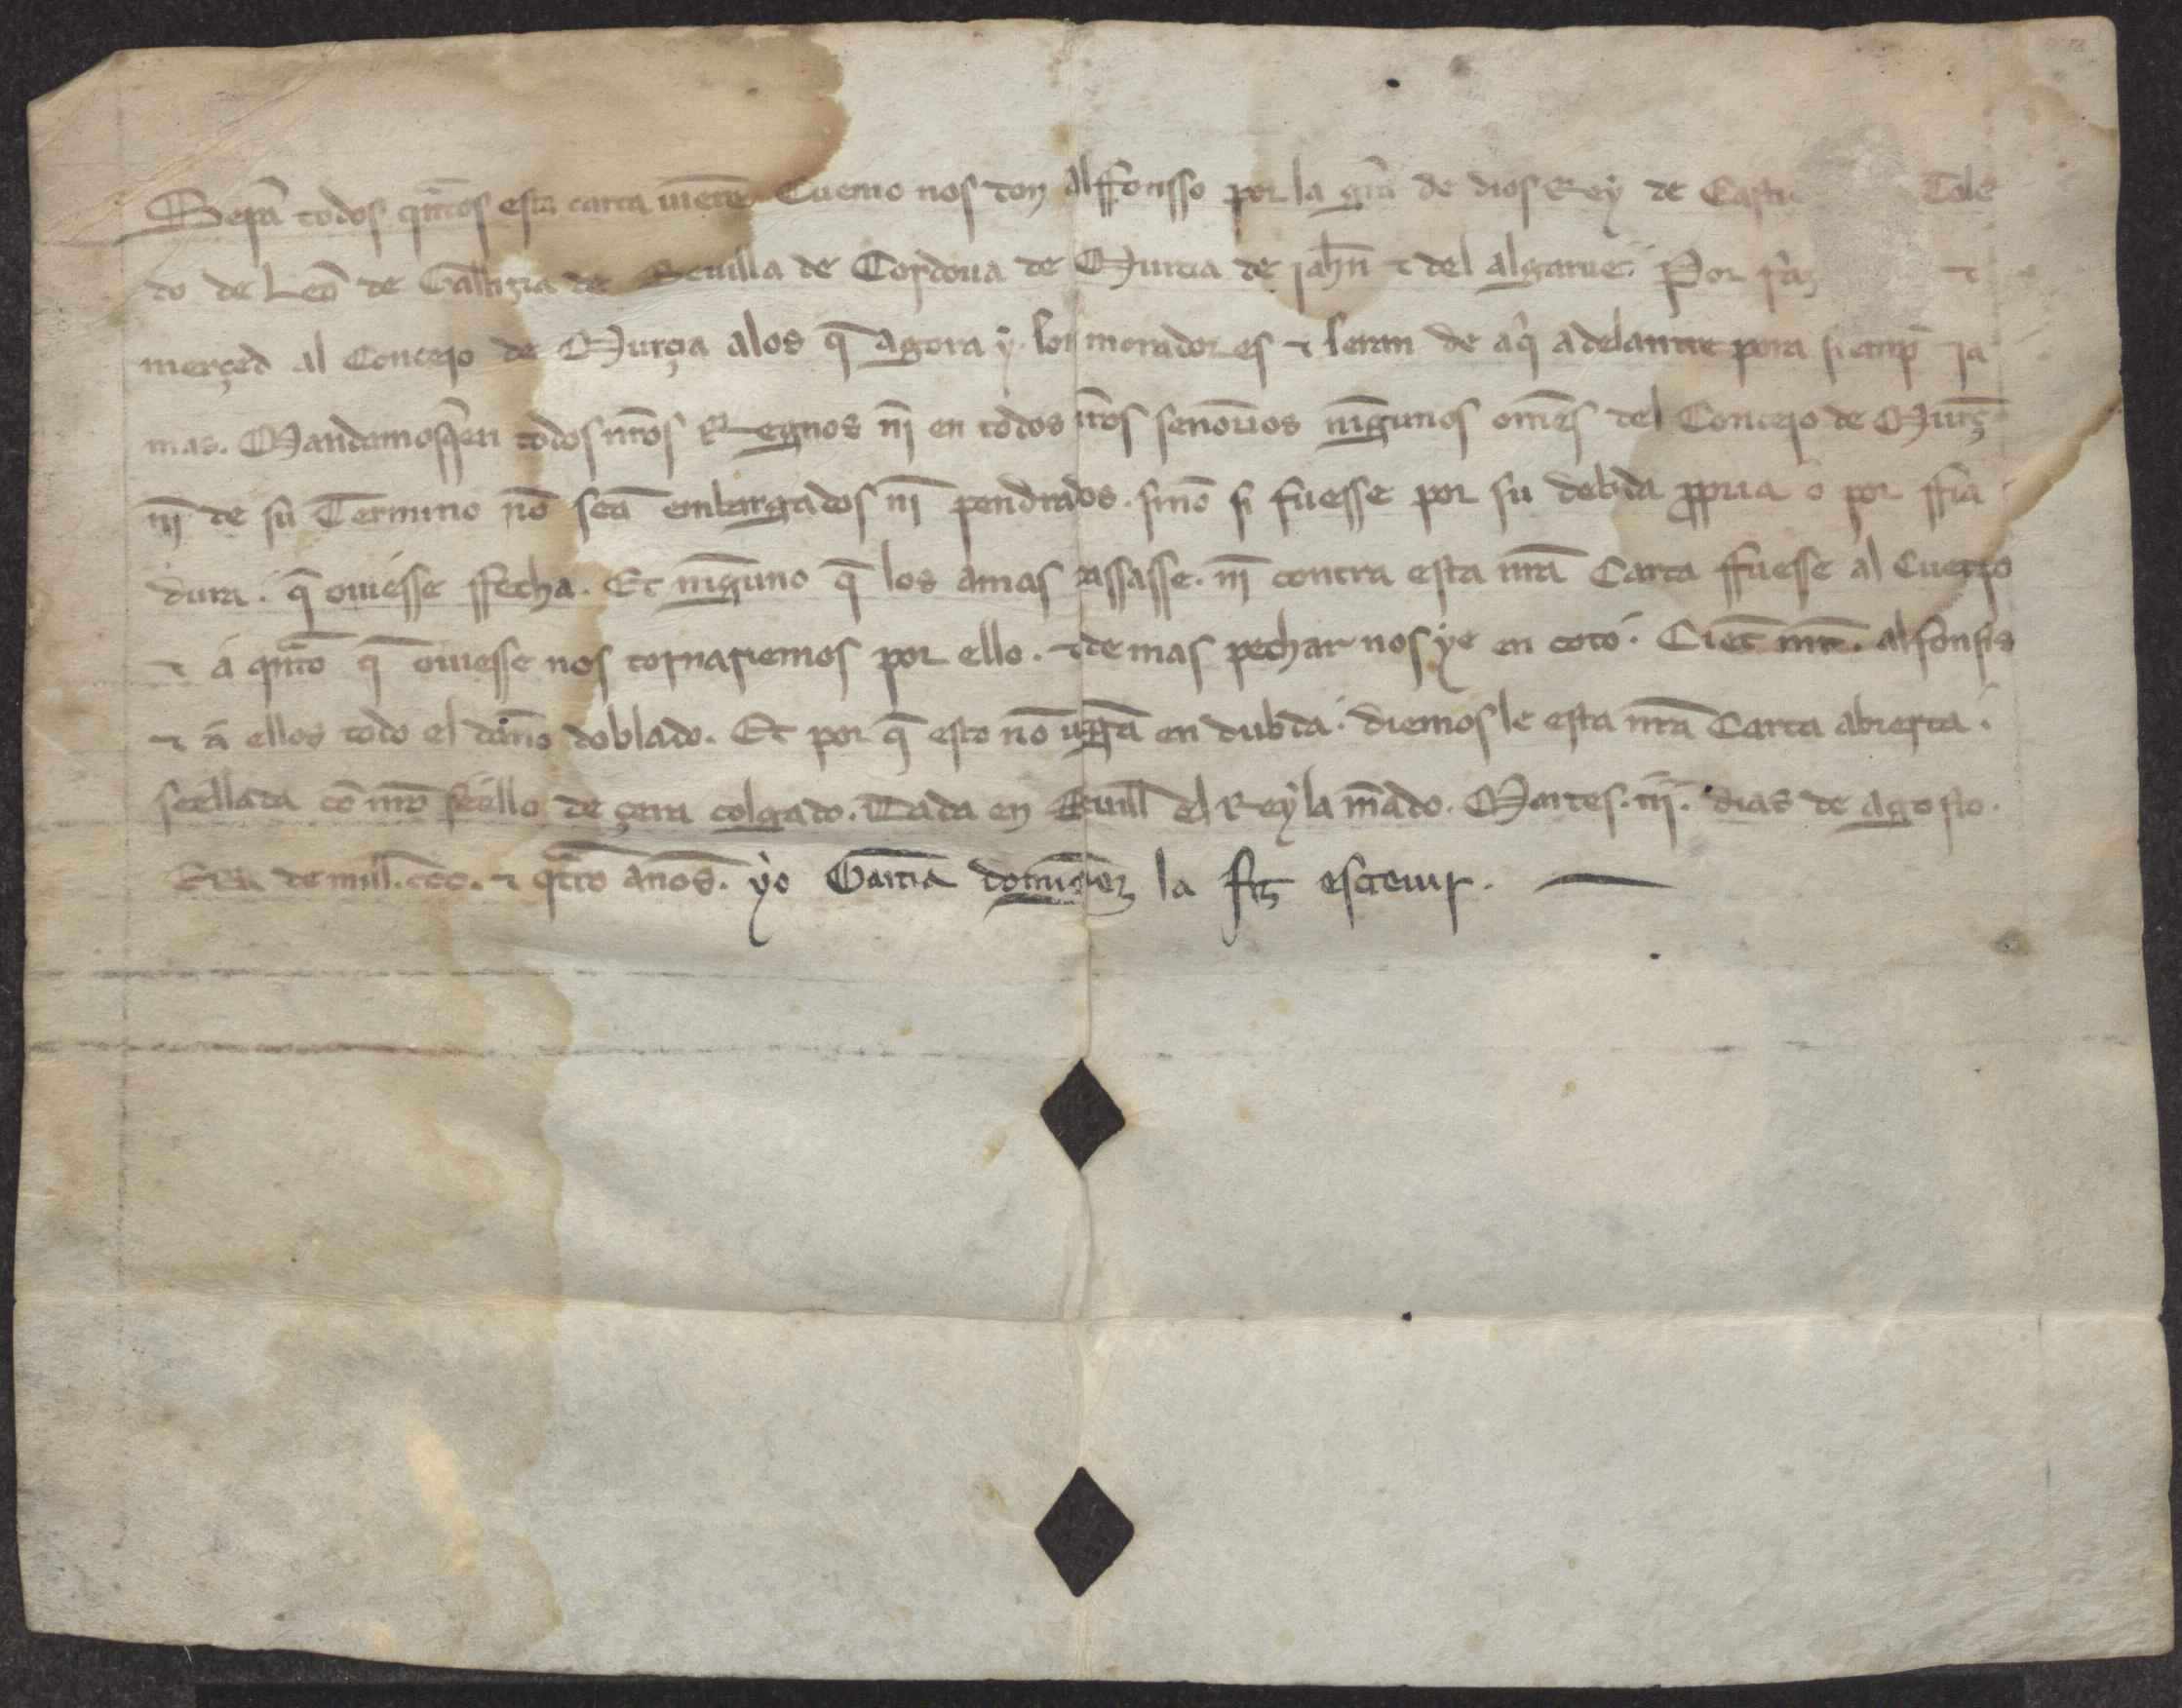 Sepã todos qͣntos esta carta uierẽ Cuemo nos don Alffonsso por la grã de dios Rey de Tole
do de Leõ de Gallizia de Seuilla de Cordoua de Murcia de jahñ ⁊ del algarue. Por ⁊
merçed al Conceio de Murçia alos q̃ agora y son moradores ⁊ seran de aq̾ adelante pora siemp̃ ja
mas. Mandamos q̃ en todos nr̃os Regnos nĩ en todos nr̃os senorios nĩgunos om̃es del Conceio de Murç̃
nĩ de su Termino nõ seã enbargados nĩ pendrados. sinõ si fuesse por su debda ꝓpria o por ffia
dura. q̃ ouiesse ffecha. Et nĩguno q̃ los amas passasse. nĩ contra esta nr̃a Carta ffuese al Cuerpo
⁊ a qͣnto q̃ ouiesse nos tornariemos por ello. ⁊ demas pechar nos ye en coto. Ciet mr̃. alfonsis
⁊ a ellos todo el dãno doblado. Et por q̃ esto nõ uẽga en dubda. diemosle esta nr̃a Carta abierta.
seellada cõ nr̃o seello de çera colgado. Dada en Seuill el Rey la mãdo. Martes. iij. dias de agosto.
Era de mill. ccc. ⁊ qͣtro anños. yo Garcia domĩguez la fiz escreuir.